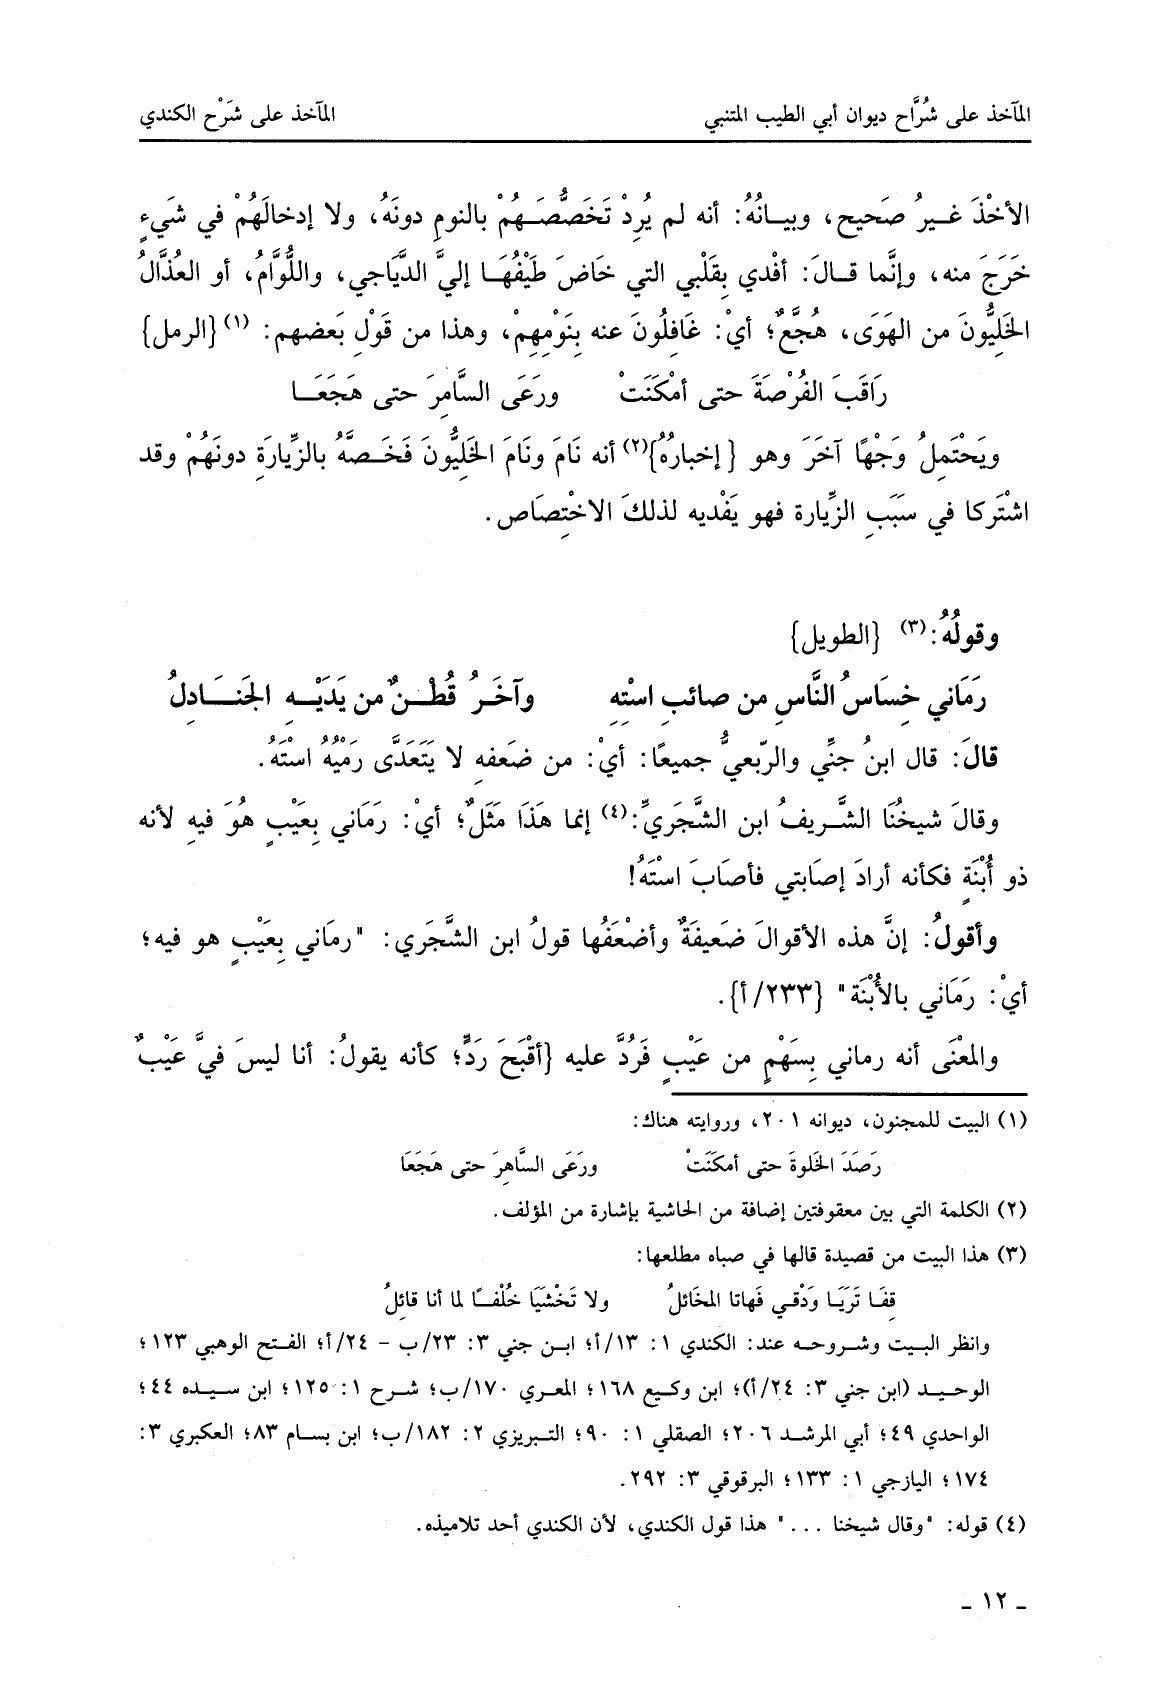 المآخذ على شُرَّاح ديوان أبي الطيب المتنبي المآخذ على شَرْح الكندي
الأخْذَ غيرُ صَحيح، وبيانُهُ: أنه لم يُرِدْ تَخَصُّصَهُمْ بالنومِ دونَهُ، ولا إدخالَهُمْ في شَيءٍ
خَرَجَ منه، وإنَّما قالَ: أفْدي بِقَلْبي التي خَاضَ طَيْفُهَا إليَّ الدَّيَاجي، واللُّوَّامُ، أو العُذَّالُ
الخَلِيُّونَ من الهَوَى، هُجَّعٌ؛ أيْ: غَافِلُونَ عنه بِنَوْمِهِمْ، وهذا من قَوْلِ بَعضهم: (١) {الرمل}
رَاقَبَ الفُرْصَةَ حتى أمْكَنَتْ ورَعَى السَّامِرَ حتى هَجَعَا
ويَحْتَمِلُ وَجْهًا آخَرَ وهو {إخبارُهُ}(٢) أنه نَامَ ونَامَ الخَلِيُّونَ فَخَصَّهُ بالزِّيارَةِ دونَهُمْ وقد
اشْتَركا في سَبَبِ الزِّيارة فهو يَفْديه لذلكَ الاخْتِصَاص.
وقولُهُ:(٣) {الطويل}
رَمَاني خِسَاسُ النَّاسِ من صائبِ اسْتِهِ وآخَرُ قُطْنٌ من يَدَيْهِ الجَنَادلُ
قالَ: قال ابنُ جنِّي والرّبعيُّ جميعًا: أيْ: من ضَعفِه لا يَتَعَدَّى رَمْيُهُ اسْتَهُ.
وقالَ شيخُنَا الشَّريفُ ابن الشَّجَريِّ:(٤) إنما هَذَا مَثَلٌ؛ أيْ: رَمَاني بِعَيْبٍ هوَ فيهِ لأنه
ذو أُبْنَةٍ فكأنه أرادَ إصَابتي فأصَابَ اسْتَهُ!
وأقولُ: إنَّ هذه الأقوالَ ضَعيفَةٌ وأضْعَفُها قولُ ابن الشَّجَري: "رمَاني بِعَيْبٍ هو فيه؛
أيْ: رَمَاني بالأُبْنَة" {٢٣٣/أ}.
والمعْنَى أنه رماني بِسَهْمٍ من عَيْبٍ فَرُدَّ عليه {أقْبَحَ رَدٍّ؛ كأنه يقولُ: أنا ليسَ فيَّ عَيْبٌ
(١) البيت للمجنون، ديوانه ٢٠١، وروايته هناك:
رَصَدَ الخَلوةَ حتى أمكَنَتْ ورَعَى السَّاهِرَ حتى هَجَعَا
(٢) الكلمة التي بين معقوفتين إضافة من الحاشية بإشارة من المؤلف.
(٣) هذا البيت من قصيدة قالها في صباه مطلعها:
قِفَا تَرَيَا وَدْقي فَهاتا المخَائلُ ولا تَخْشَيَا خُلْفًا لما أنا قائِلُ
وانظر البيت وشروحه عند: الكندي ١: ١٣/أ؛ ابن جني ٣: ٢٣/ب – ٢٤/أ؛ الفتح الوهبي ١٢٣؛
الوحيد (ابن جني ٣: ٢٤/أ)؛ ابن وكيع ١٦٨؛ المعري ١٧٠/ب؛ شرح ١: ١٢٥؛ ابن سيده ٤٤؛
الواحدي ٤٩؛ أبي المرشد ٢٠٦؛ الصقلي ١: ٩٠؛ التبريزي ٢: ١٨٢/ب؛ ابن بسام ٨٣؛ العكبري ٣:
١٧٤؛ اليازجي ١: ١٣٣؛ البرقوقي ٣: ٢٩٢.
(٤) قوله: "وقال شيخنا ..." هذا قول الكندي، لأن الكندي أحد تلاميذه.
ـ ١٢ ـ